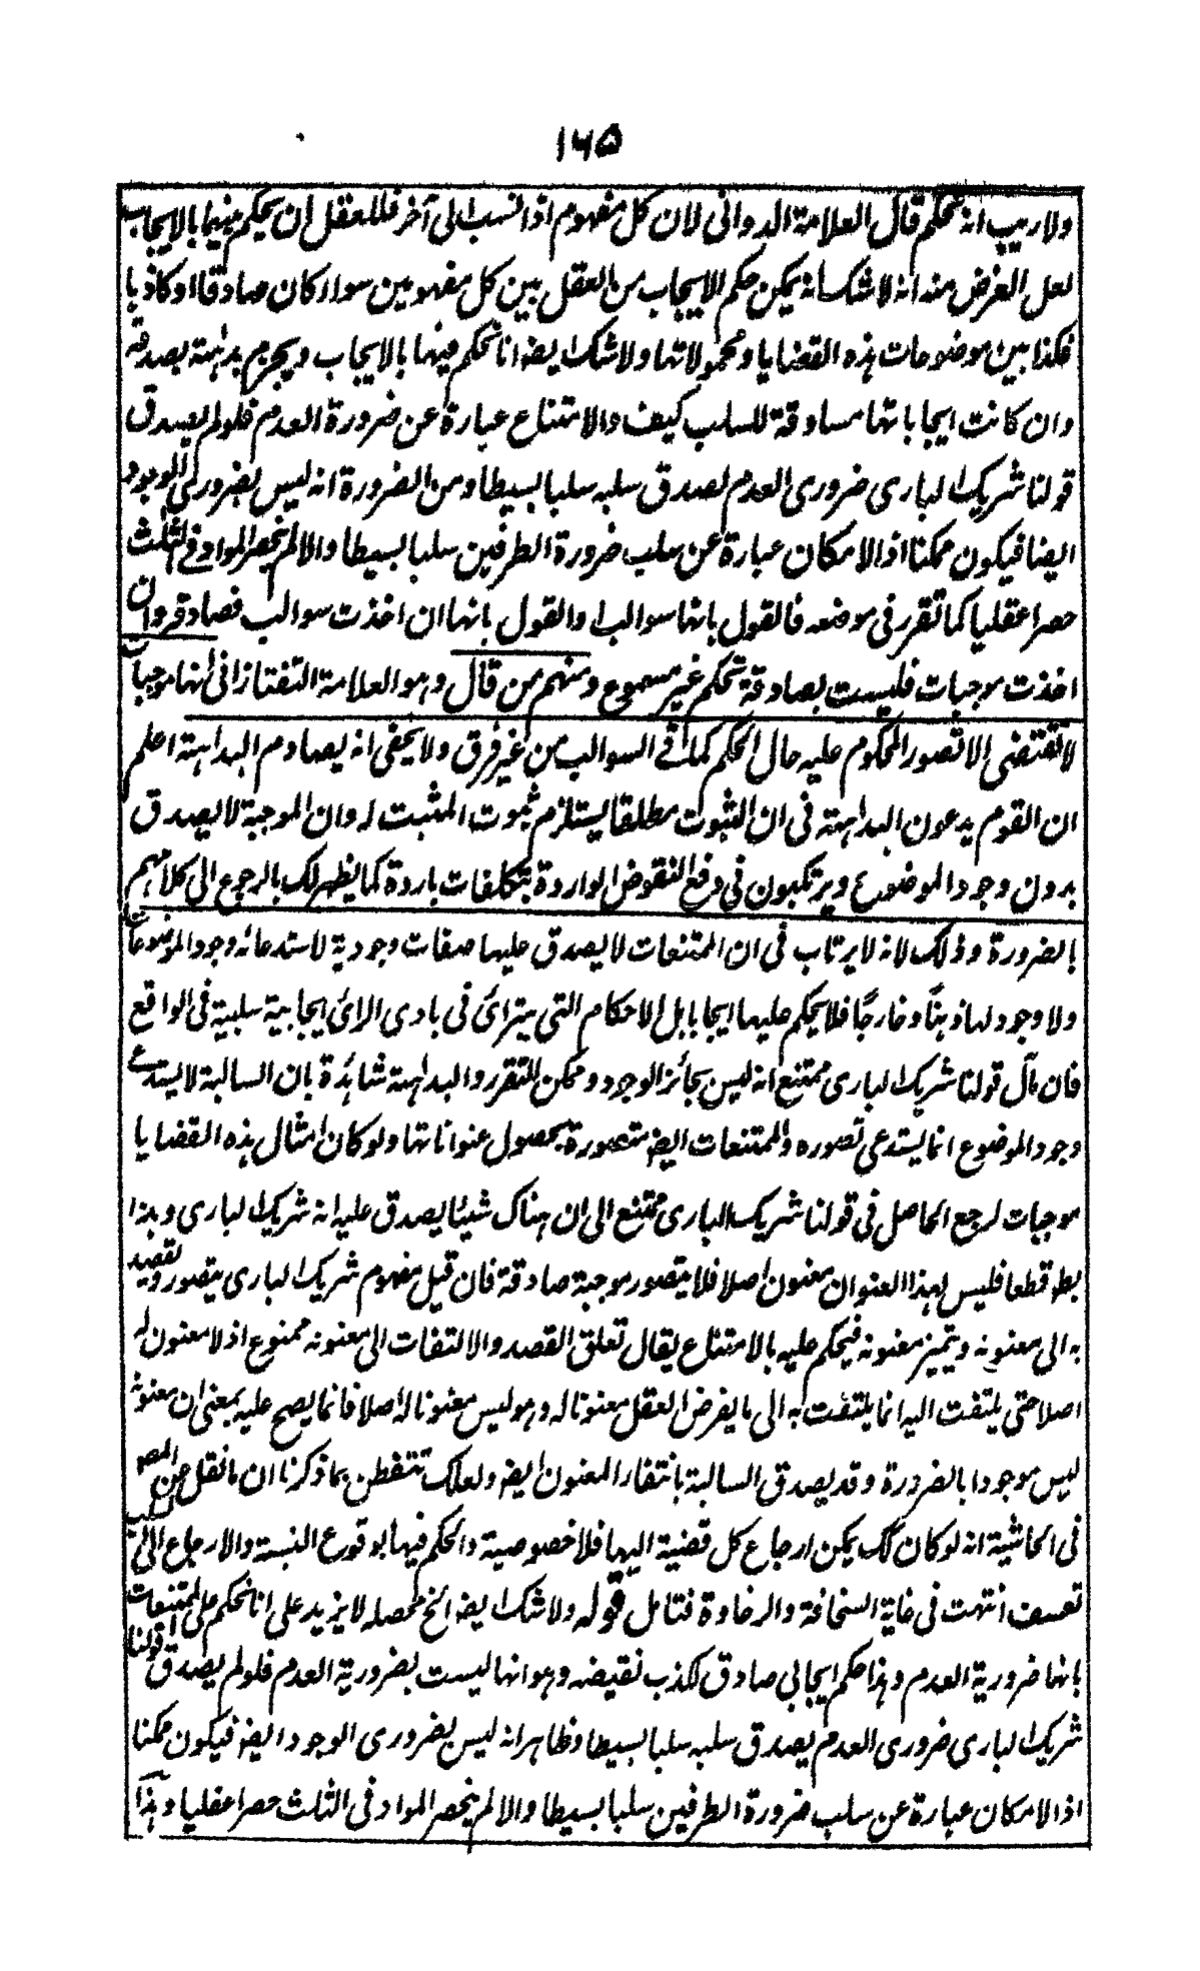 ١٦٥
ولا ريب انه تحكم قال العلامة الدوانى لان كل مفهوم اذا نسب الى آخر فللعقل ان يحكم بينهما بالايجاب
لعل الغرض منه انه لا شك انه يمكن حكم الايجاب من العقل بين كل مفهومين سواء كان صادقا او كاذبا
فكذا بين موضوعات هذه القضايا ومحمولاتها ولا شك ايضه انا نحكم فيها بالايجاب ويجزم بداهة بصدقه
وان كانت ايجاباتها مساوقة للسلب كيف والامتناع عبارة عن ضرورة العدم فلو لم يصدق
قولنا شريك البارى ضرورى العدم لصدق سلبه سلبا بسيطا ومن الضرورة انه ليس بضرورى الوجود
ايضا فيكون ممكنا اذ الامكان عبارة عن سلب ضرورة الطرفين سلبا بسيطا والا لم ينحصر المواد فى الثلث
حصرا عقليا كما تقرر فى موضعه فالقول بانها سوالب او القول بانها ان اخذت سوالب فصادقة وان
اخذت موجبات فليست بصادقة تحكم غير مسموع ومنهم من قال وهو العلامة التفتازانى انها موجبات
لا تقتضى الا تصور المحكوم عليه حال الحكم كما فى السوالب من غير فرق ولا يخفى انه يصادم البداهة اعلم
ان القوم يدعون البداهة فى ان الثبوت مطلقا يستلزم ثبوت المثبت له وان الموجبة لا يصدق
بدون وجود الموضوع ويرتكبون فى دفع النقوض الواردة بتكلفات باردة كما يظهر لك بالرجوع الى كلامهم
بالضرورة وذلك لانه لا يرتاب فى ان الممتنعات لا يصدق عليها صفات وجودية لاستدعائه وجود الموضوعات
ولا وجود لها ذهنًا وخارجًا فلا يحكم عليها ايجابا بل الاحكام التى يترائى فى بادى الرائ ايجابية سلبية فى الواقع
فان مآل قولنا شريك البارى ممتنع انه ليس بجائز الوجود وممكن التقرر والبداهة شاهدة بان السالبة لا يستدعى
وجود الموضوع انما يستدعى تصوره والممتنعات ايضه متصورة بحصول عنواناتها ولو كان امثال هذه القضايا
موجبات لرجع الحاصل فى قولنا شريك البارى ممتنع الى ان هناك شيئا يصدق عليه انه شريك البارى وهذا
بط قطعا فليس لهذا العنوان معنون اصلا فلا يتصور موجبة صادقة فان قيل مفهوم شريك البارى يتصور ويقصد
به الى معنونه ويتميز معنونه فيحكم عليه بالامتناع يقال تعلق القصد والالتفات الى معنونه ممنوع اذ لا معنون له
اصلا حتى يلتفت اليه انما يلتفت به الى ما يفرض العقل معنونا له وهو ليس معنونا له اصلا فانما يصح عليه بمعنى ان معنونه
ليس موجودا بالضرورة وقد يصدق السالبة بانتفاء المعنون ايضه ولعلك تتفطن بما ذكرنا ان ما نقل عن المصه
فى الحاشية انه لو كان كك يمكن ارجاع كل قضية اليها فلا خصوصية والحكم فيها بوقوع النسبة والارجاع الى السلب
تعسف انتهت فى غاية السخافة والرخاوة فتامل قوله ولا شك ايضه الخ محصله لا يزيد على انا نحكم على الممتنعات
بانها ضرورية العدم وهذا حكم ايجابى صادق لكذب نقيضه وهو انها ليست بضرورية العدم فلو لم يصدق قولنا
شريك البارى ضرورى العدم يصدق سلبه سلبا بسيطا وظاهر انه ليس بضرورى الوجود ايضه فيكون ممكنا
اذ الامكان عبارة عن سلب ضرورة الطرفين سلبا بسيطا والا لم ينحصر المواد فى الثلث حصرا عقليا وهذا